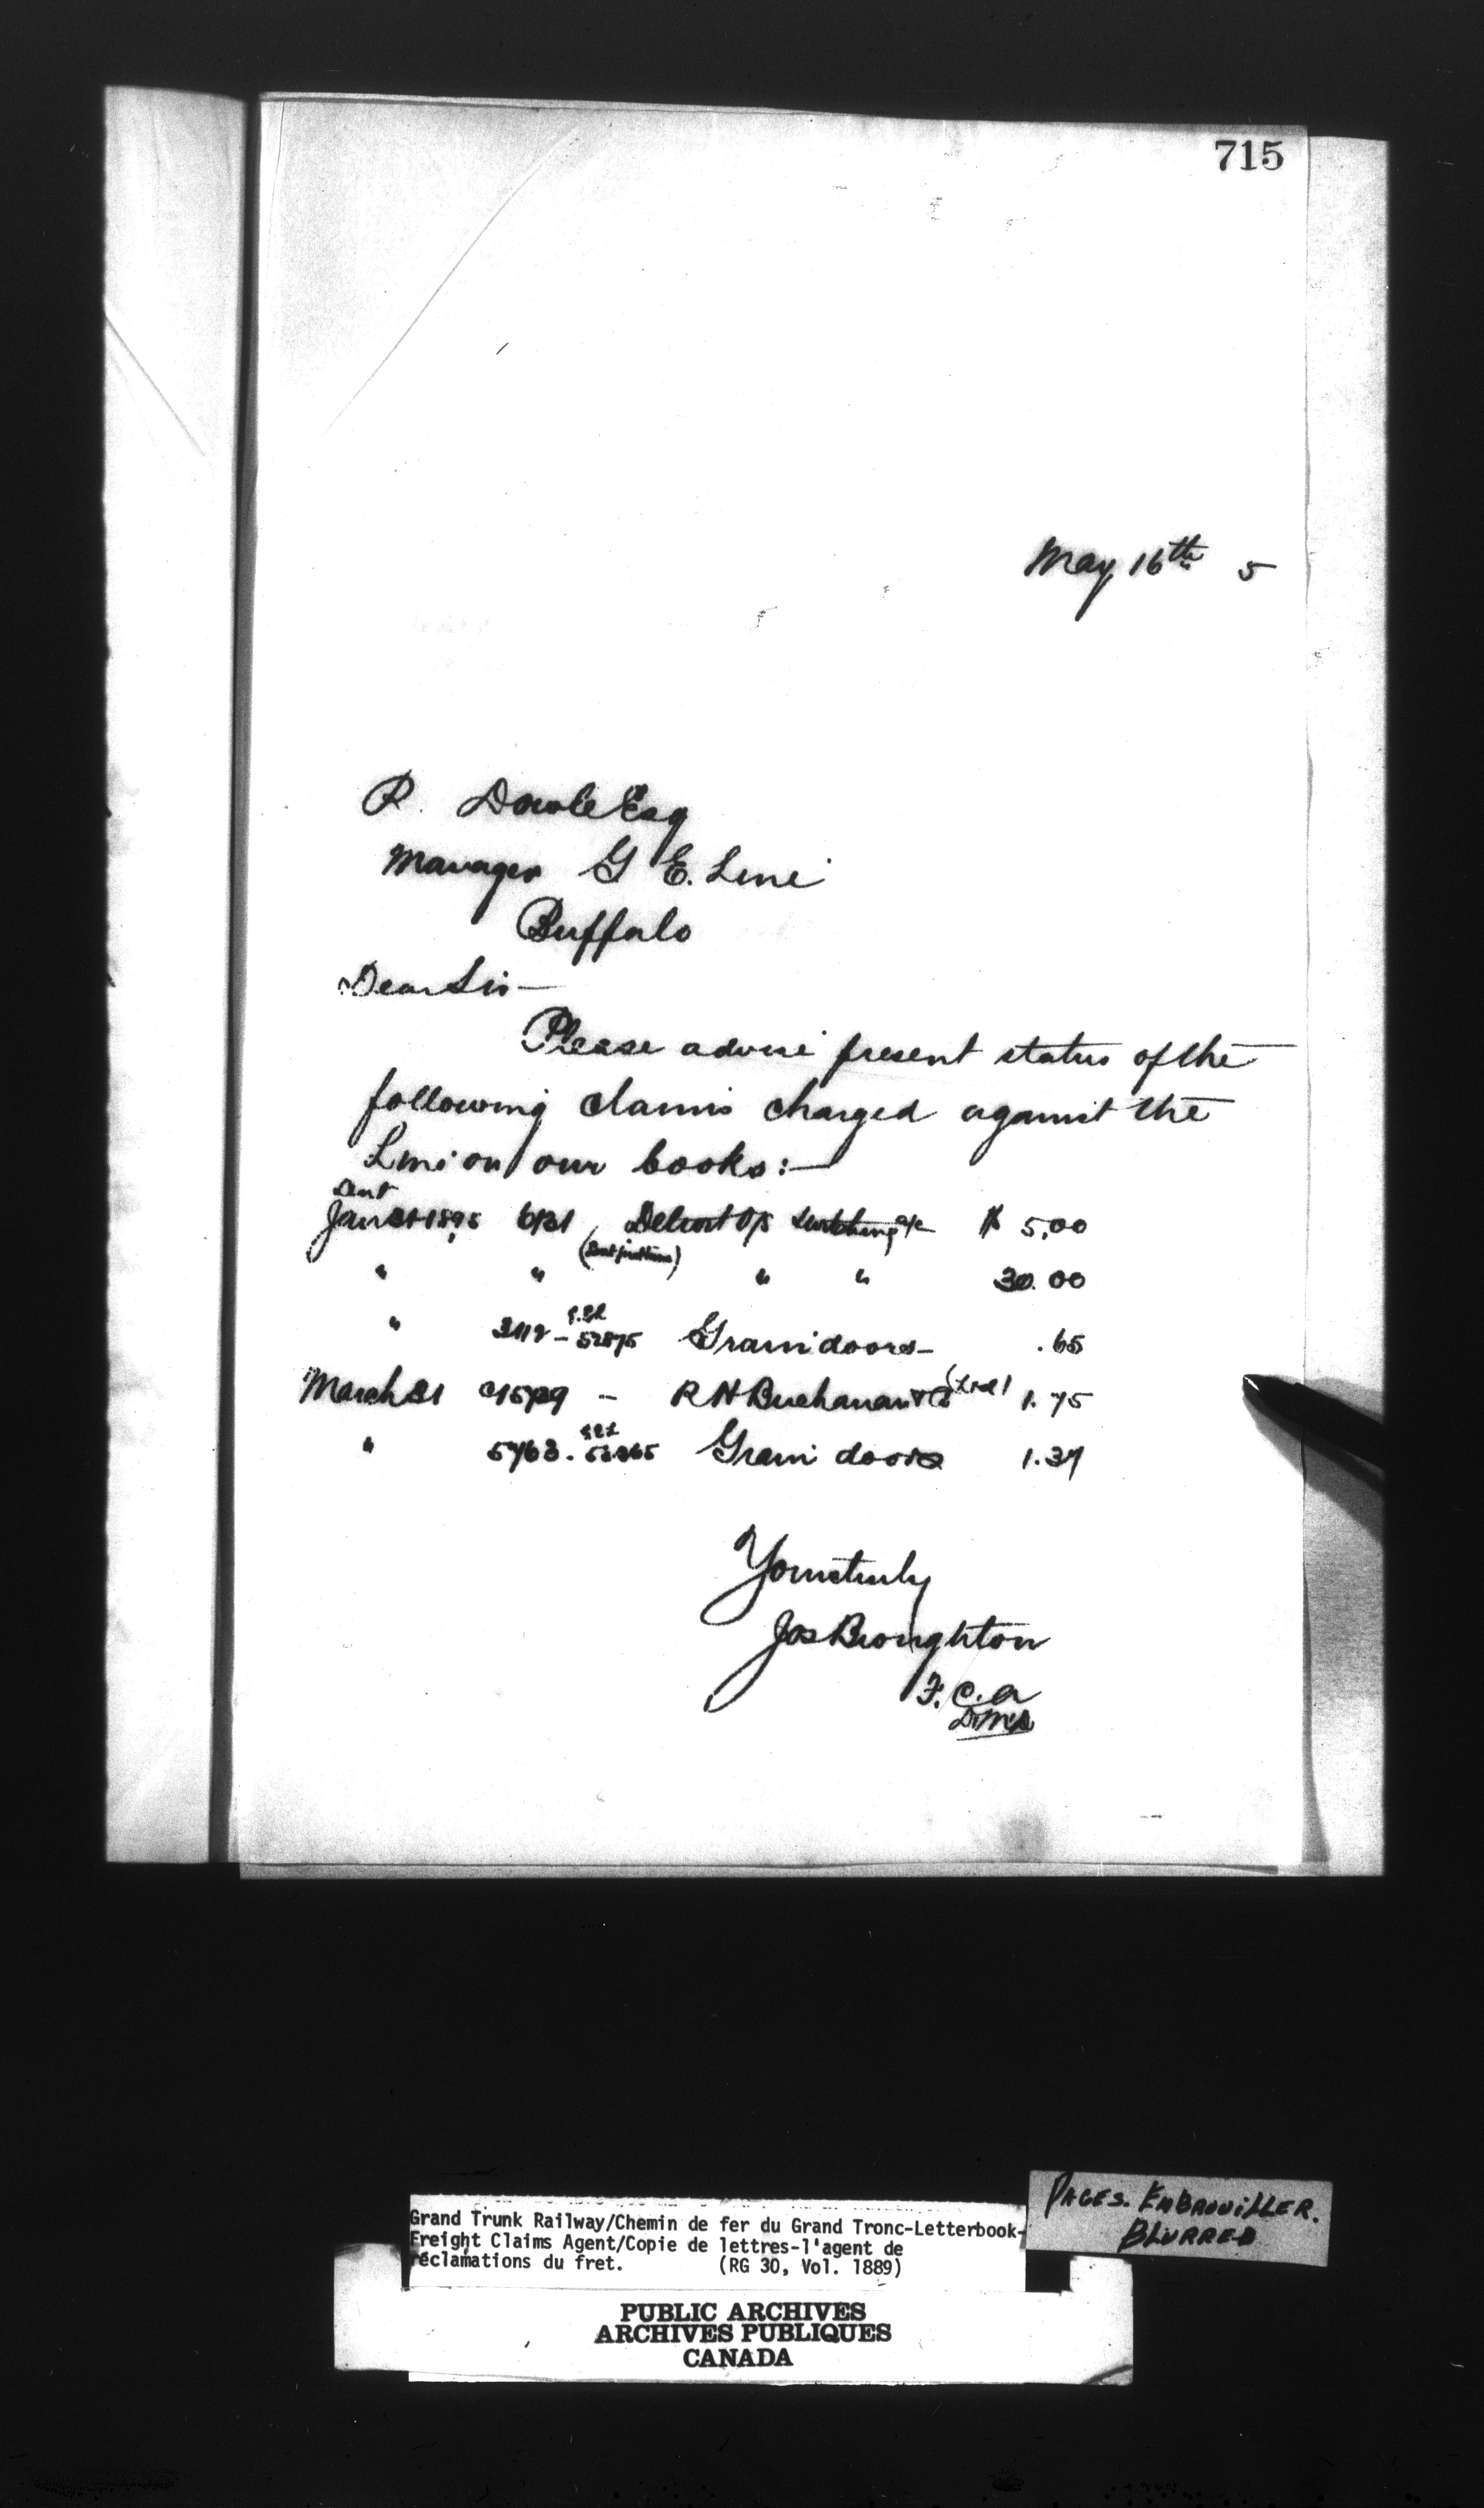 715
May 16th 5
R. Dowle Esq
Manager G E. Line
Buffalo
Dear Sir —
Please advise present status of the
following claims charged against the
Line on our books :—
Sent
Jan 31 1895 6131 Detroit Switching a/c $ 5.00
" " " " 30.00
" 3112 - 52875 Grain doors - .65
March 31 - R H Buchanan & Co 1.75
" 5763. Grain doors 1.37
Yours truly
Jos Broughton
F. C. A
Grand Trunk Railway/Chemin de fer du Grand Tronc-Letterbook-
Freight Claims Agent/Copie de lettres-l'agent de
réclamations du fret. (RG 30, Vol. 1889)
PAGES. EMBROUILLER.
BLURRED
PUBLIC ARCHIVES
ARCHIVES PUBLIQUES
CANADA